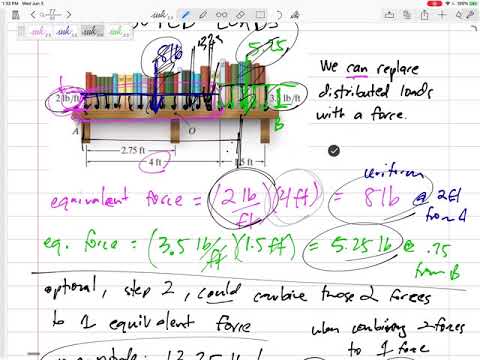 1:53 PM Wed Jun 3
LOADS
8 lb
5.25
2 lb/ft
3.5 lb/ft
A
O
B
2.75 ft
4 ft
1.5 ft
We can replace
distributed loads
with a force.
uniform
equivalent force = (2 lb/ft)(4 ft) = 8 lb @ 2 ft
from A
eq. force = (3.5 lb/ft)(1.5 ft) = 5.25 lb @ .75
from B
optional, step 2, could combine those 2 forces
to 1 equivalent force
when combining 2 forces
to 1 force